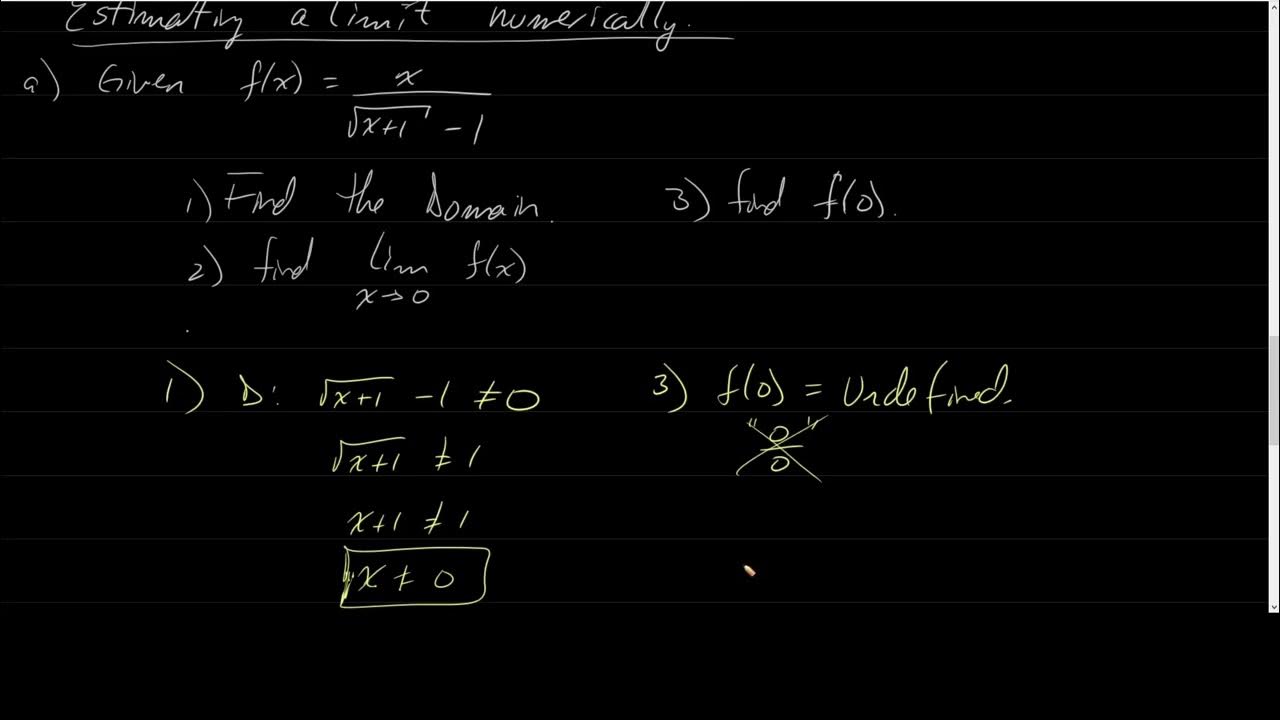 Estimating a limit numerically.
a) Given f(x) = x / √(x+1) - 1
1) Find the Domain.
2) find lim x→0 f(x)
3) find f(0).
1) D: √(x+1) - 1 ≠ 0
√(x+1) ≠ 1
x+1 ≠ 1
x ≠ 0
3) f(0) = Undefined.
"0/0"